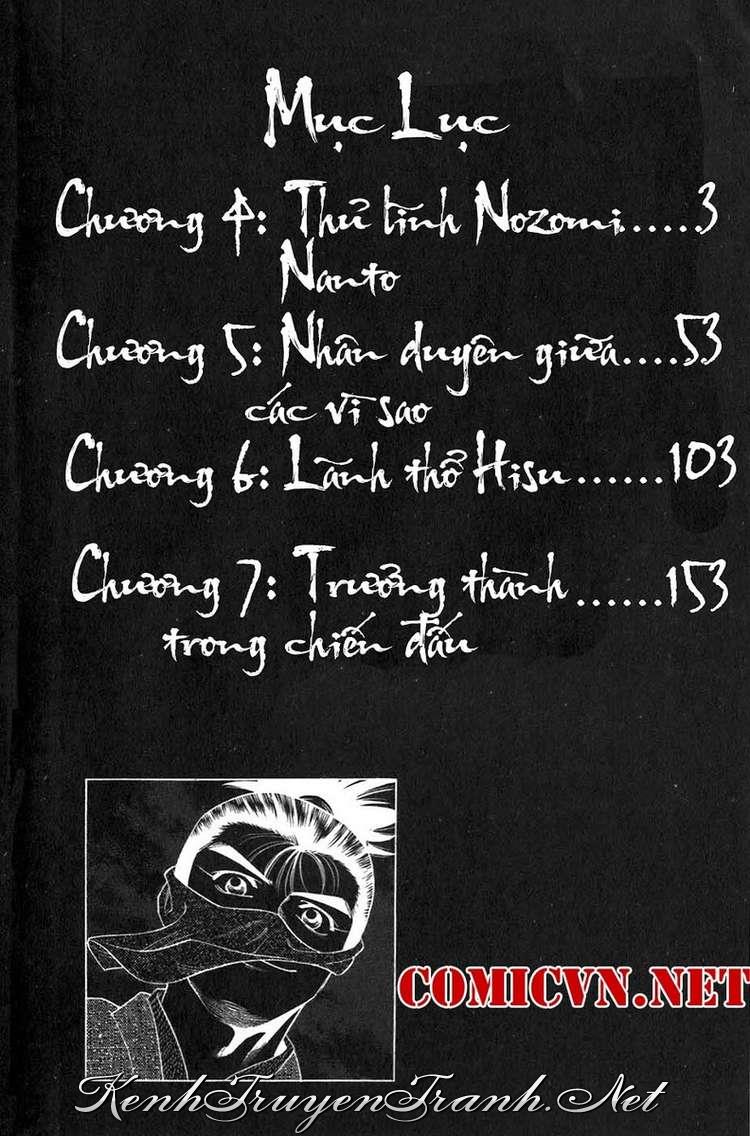 Mục Lục
Chương 4: Thử tình Nozomi......3
Nanto
Chương 5: Nhân duyên giữa....53
các vì sao
Chương 6: Lãnh thổ Hisu......103
Chương 7: Trưởng thành ......153
trong chiến đấu
COMICVN.NET
KenhTruyenTranh.Net